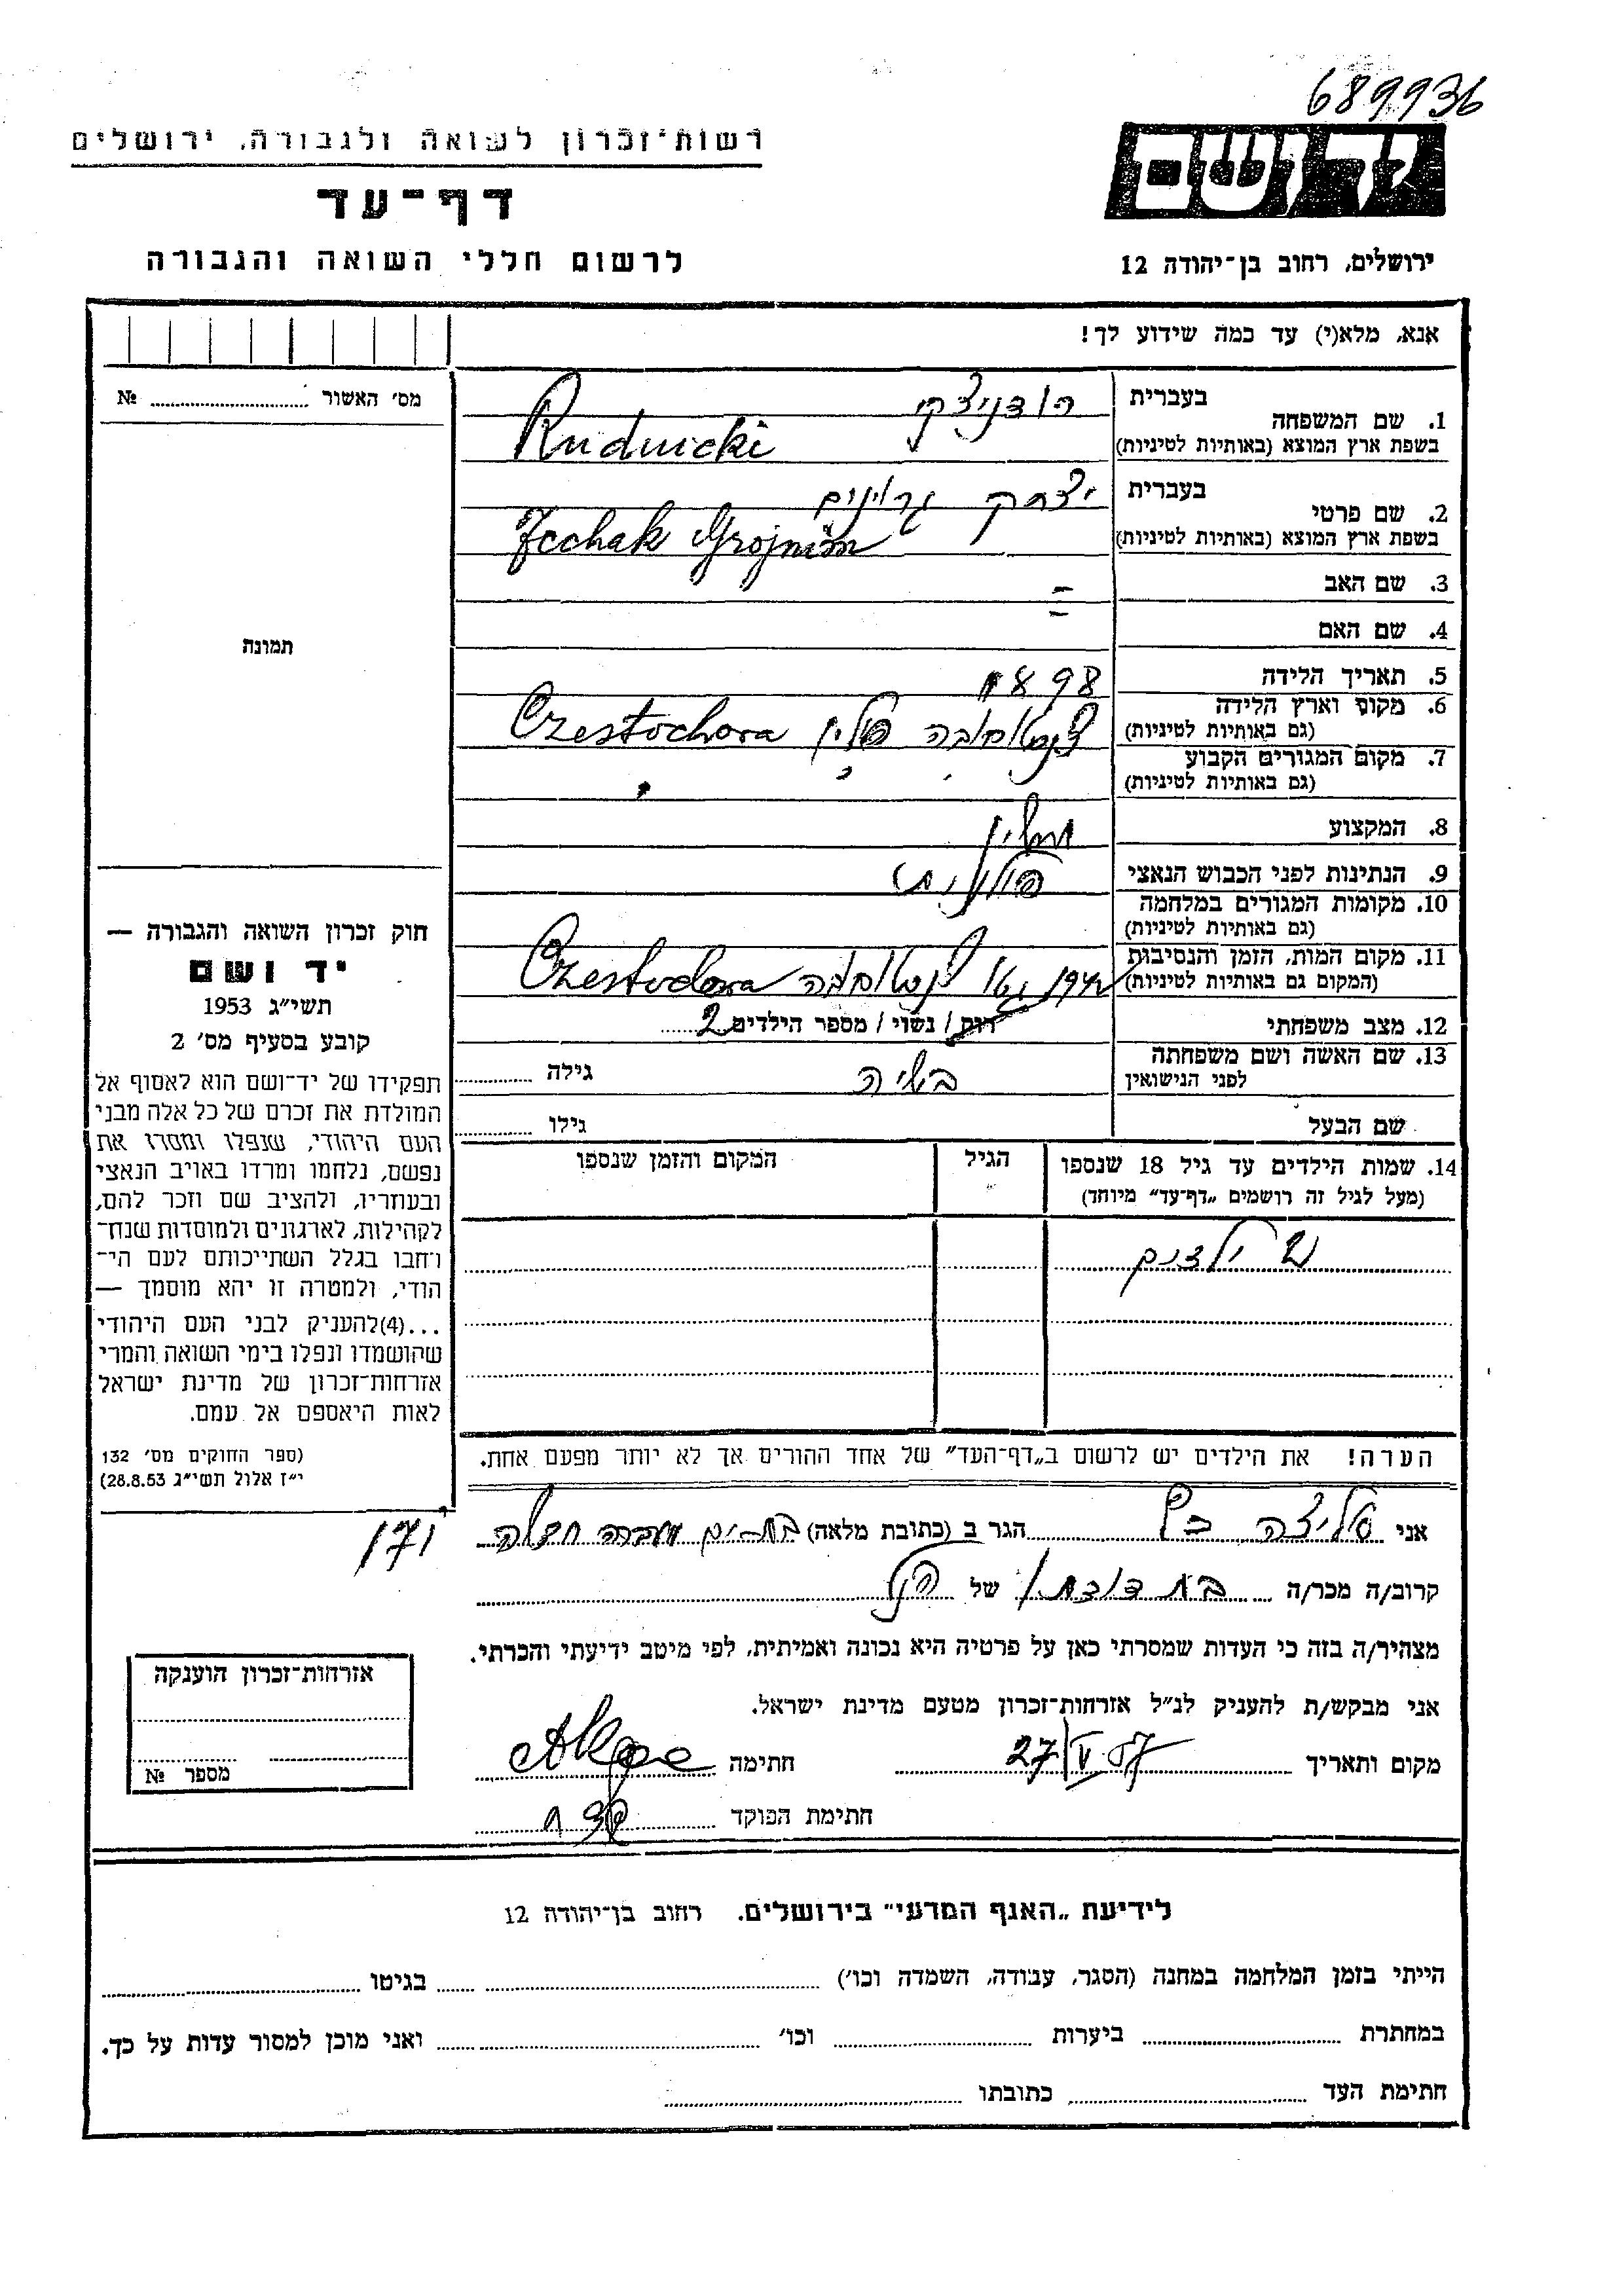 689936
רשות־זכרון לשואה ולגבורה, ירושלים
דף־עד
לרשום חללי השואה והגבורה
ידושם
ירושלים, רחוב בן־יהודה 12
אנא, מלא(י) עד כמה שידוע לך!
מס׳ האשור № 
1. שם המשפחה
בעברית
רודניצקי
בשפת ארץ המוצא (באותיות לטיניות)
Rudnicki
2. שם פרטי
בעברית
יצחק גרוינים
בשפת ארץ המוצא (באותיות לטיניות)
Icchak Grojnim
3. שם האב
=
4. שם האם
5. תאריך הלידה
1898
6. מקום וארץ הלידה
(גם באותיות לטיניות)
פולין Czestochova
7. מקום המגורים הקבוע
(גם באותיות לטיניות)
8. המקצוע
9. הנתינות לפני הכבוש הנאצי
פולנית
10. מקומות המגורים במלחמה
(גם באותיות לטיניות)
11. מקום המות, הזמן והנסיבות
(המקום גם באותיות לטיניות)
1942 גטו Czestochova
12. מצב משפחתי
רוק / נשוי / מספר הילדים 2
13. שם האשה ושם משפחתה
לפני הנישואין
גילה
שם הבעל
גילו
14. שמות הילדים עד גיל 18 שנספו
(מעל לגיל זה רושמים „דף־עד״ מיוחד)
הגיל
המקום והזמן שנספו
2 ילדים
הערה! את הילדים יש לרשום ב„דף־העד״ של אחד ההורים אך לא יותר מפעם אחת.
תמונה
חוק זכרון השואה והגבורה —
יד ושם
תשי״ג 1953
קובע בסעיף מס׳ 2
תפקידו של יד־ושם הוא לאסוף אל
המולדת את זכרם של כל אלה מבני
העם היהודי, שנפלו ומסרו את
נפשם, נלחמו ומרדו באויב הנאצי
ובעוזריו, ולהציב שם וזכר להם,
לקהילות, לארגונים ולמוסדות שנח־
רחבו בגלל השתייכותם לעם הי־
הודי, ולמטרה זו יהא מוסמך —
...(4)להעניק לבני העם היהודי
שהושמדו ונפלו בימי השואה והמרי
אזרחות־זכרון של מדינת ישראל
לאות היאספם אל עמם.
(ספר החוקים מס׳ 132
י״ז אלול תשי״ג 28.8.53)
171
אני הגר ב (כתובת מלאה) בת־ים
קרוב/ה מכר/ה בת דודתו של הנ״ל
מצהיר/ה בזה כי העדות שמסרתי כאן על פרטיה היא נכונה ואמיתית, לפי מיטב ידיעתי והכרתי.
אני מבקש/ת להעניק לנ״ל אזרחות־זכרון מטעם מדינת ישראל.
מקום ותאריך 27/V 57 חתימה
חתימת הפוקד
אזרחות־זכרון הוענקה
מספר №
לידיעת „האגף המדעי״ בירושלים. רחוב בן־יהודה 12
הייתי בזמן המלחמה במחנה (הסגר, עבודה, השמדה וכו׳) בגיטו
במחתרת ביערות וכו׳ ואני מוכן למסור עדות על כך.
חתימת העד כתובתו